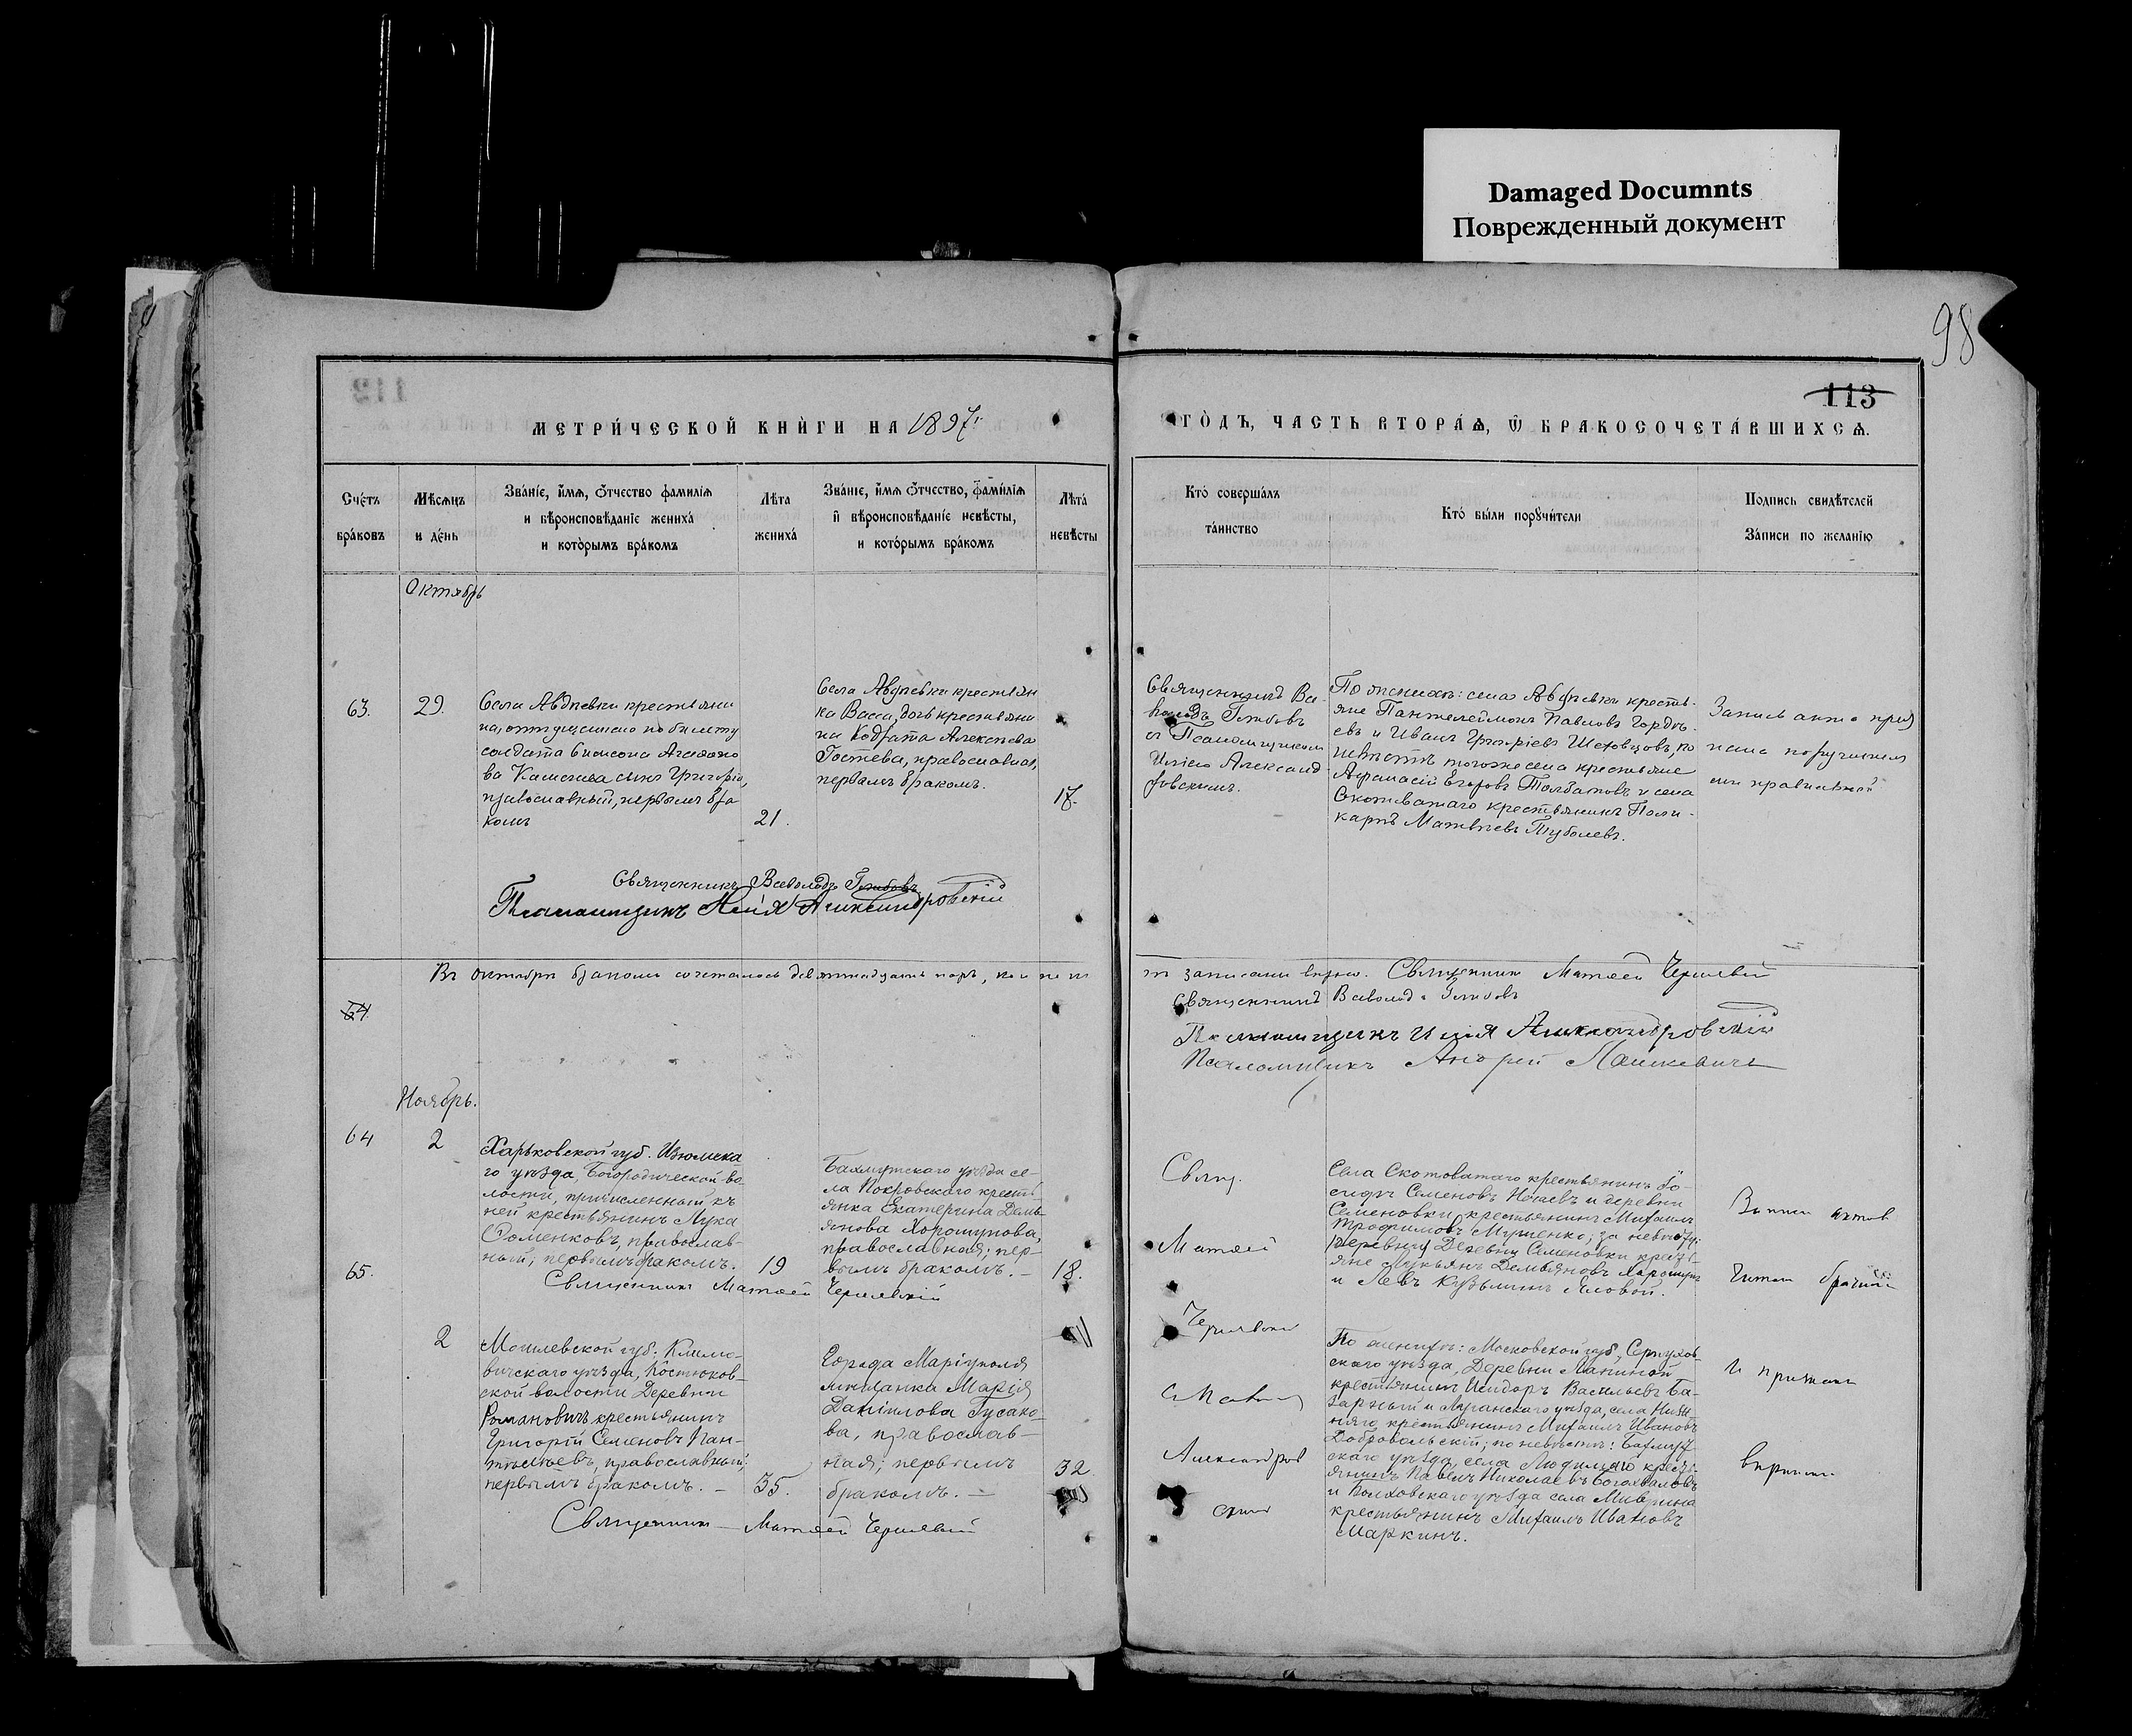 Damaged Documnts
Поврежденный документ
98
113
МЕТРИ́ЧЕСКОЙ КНИ́ГИ НА 1897 г.
ГО́ДЪ, ЧАСТЬ ВТОРА́Ѧ, Ѿ БРАКОСОЧЕТА́ВШИХСѦ.
Сче́тъ бра́ковъ
Мѣ́сѧцъ и де́нь
Зва́нїе, и́мѧ, о́тчество фами́лїѧ
и вѣроисповѣ́данїе жениха́
и кото́рымъ бра́комъ
Лѣ́та жениха́
Зва́нїе, и́мѧ о́тчество, фами́лїѧ
и вѣроисповѣ́данїе невѣ́сты,
и кото́рымъ бра́комъ
Лѣта́ невѣ́сты
Кто́ соверша́лъ
та́инство
Кто́ бы́ли порꙋчи́тели
Подпись свидѣтелей
За́писи по жела́нїю
Октябрь
63.
29.
Села Авдѣевки крестьяни
на, отпущеннаго по билету
солдата
ва сынъ Григорій,
православный, первымъ бра
комъ
21.
Села Авдѣевки крестьян
ка Васса, дочь крестьяни
на Кодрата Алексѣева
Гостева, православная,
первымъ бракомъ.
17.
Священникъ Все-
володъ Глѣбовъ
съ Псаломщикомъ
Иліею Александ-
ровскимъ.
По женихѣ: села Авдѣевки кресть-
яне Пантелеймонъ Павловъ Гордѣ-
евъ и Иванъ Григорьевъ Шеховцовъ, по
невѣстѣ тогоже села крестьяне
Афанасій Егоровъ Толбатовъ и села
Скотоватаго крестьянинъ Поли-
карпъ Матвѣевъ Туболевъ.
Запись акта приз
нана поручителя
ми правильной
Священникъ Всеволодъ Глѣбовъ
Псаломщикъ Илія Александровскій
Въ октябрѣ бракомъ сочеталось девятнадцать паръ,
записаны вѣрно. Священникъ Матѳей Чернявскій
Священникъ Всеволодъ Глѣбовъ
Псаломщикъ Илія Александровскій
Псаломщикъ Андрей
64.
Ноябрь.
64
2
Харьковской губ. Изюмска
го уѣзда, Богородической во
лости, причисленный къ
ней крестьянинъ Лука
Роменковъ, православ-
ный, первымъ бракомъ.
19
Бахмутскаго уѣзда се-
ла Покровскаго кресть-
янка Екатерина Демь-
янова Хорошунова,
православная; пер-
вымъ бракомъ. —
18.
Священникъ Матѳей Чернявскій
Свящ.
Матѳей
Чернявскій
Села Скотоватаго крестьянинъ Іо-
сифъ Семеновъ Ночевъ и деревни
Семеновки крестьянинъ Михаилъ
Трофимовъ за невѣсту:
Деревни Семеновки кресть-
яне Лукьянъ Демьяновъ Хорошунъ
и Левъ Кузьминъ Яловой.
Записи актов
65.
2
Могилевской губ: Климо-
вичскаго уѣзда, Костюков-
ской волости Деревни
Романовичъ крестьянинъ
Григорій Семеновъ Пан-
тѣлѣевъ, православный;
первымъ бракомъ. —
35.
Города Маріуполя
мѣщанка Марія
Даніилова Гусако-
ва, православ-
ная; первымъ
бракомъ. —
32.
Священникъ — Матѳей Чернявскій
Александров
скій
По женихѣ: Московской губ, Серпухов-
скаго уѣзда, Деревни
крестьянинъ Исидоръ Васильевъ Ба-
зарный и Луганскаго уѣзда, села Ниж-
няго крестьянинъ Михаилъ Ивановъ
Добровольскій; по невѣстѣ: Бахмут
скаго уѣзда, села кресть-
янинъ Павелъ Николаевъ Богохваловъ
и Волховскаго уѣзда села
крестьянинъ Михаилъ Ивановъ
Маркинъ.